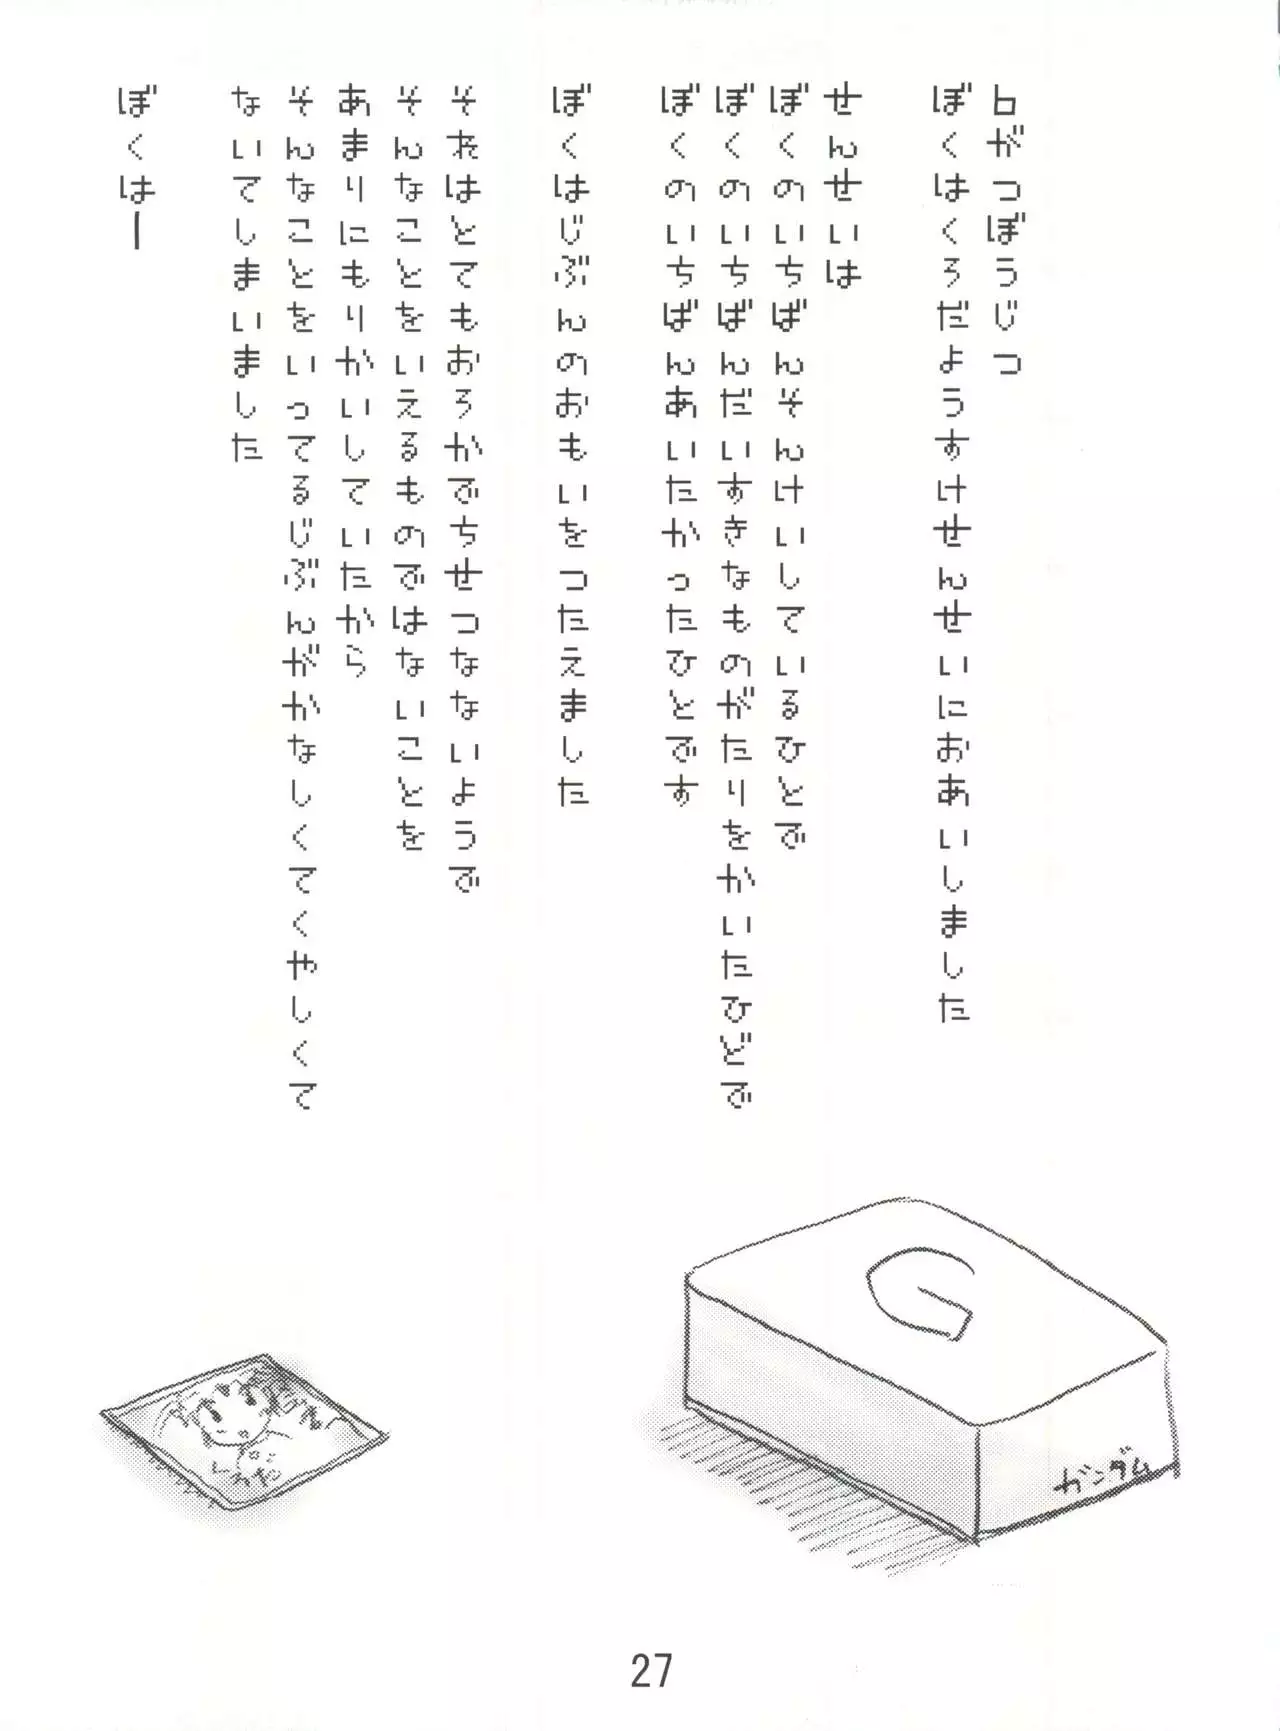 6がつぼうじつ
ぼくはくろだようすけせんせいにおあいしました
せんせいは
ぼくのいちばんそんけいしているひとで
ぼくのいちばんだいすきなものがたりをかいたひどで
ぼくのいちばんあいたかったひとです
ぼくはじぶんのおもいをつたえました
それはとてもおろかでちせつなないようで
そんなことをいえるものではないことを
あまりにもりかいしていたから
そんなことをいってるじぶんがかなしくてくやしくて
ないてしまいました
ぼくはー
ガンダム
くろだ
27